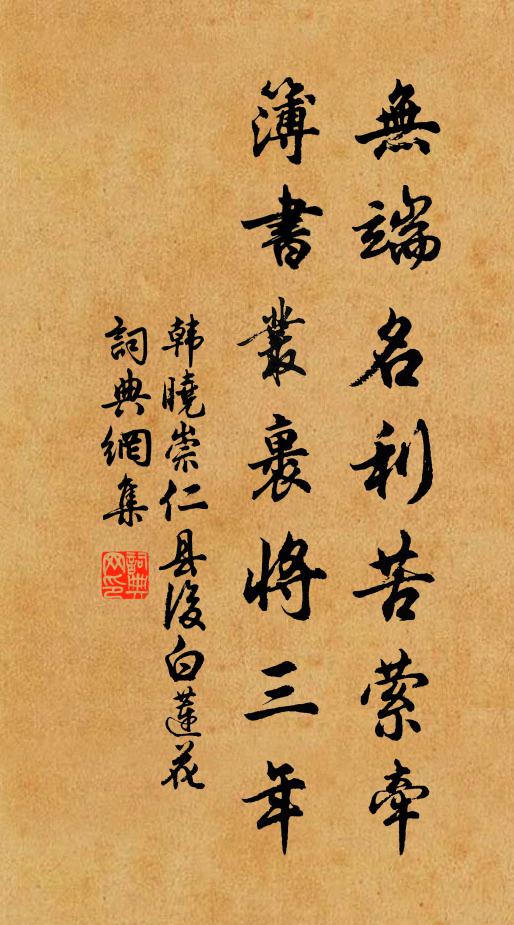 無端名利苦縈牽
簿書叢裏將三年
韩曉崇仁县後白蓮花
詞典網集
詞典網印